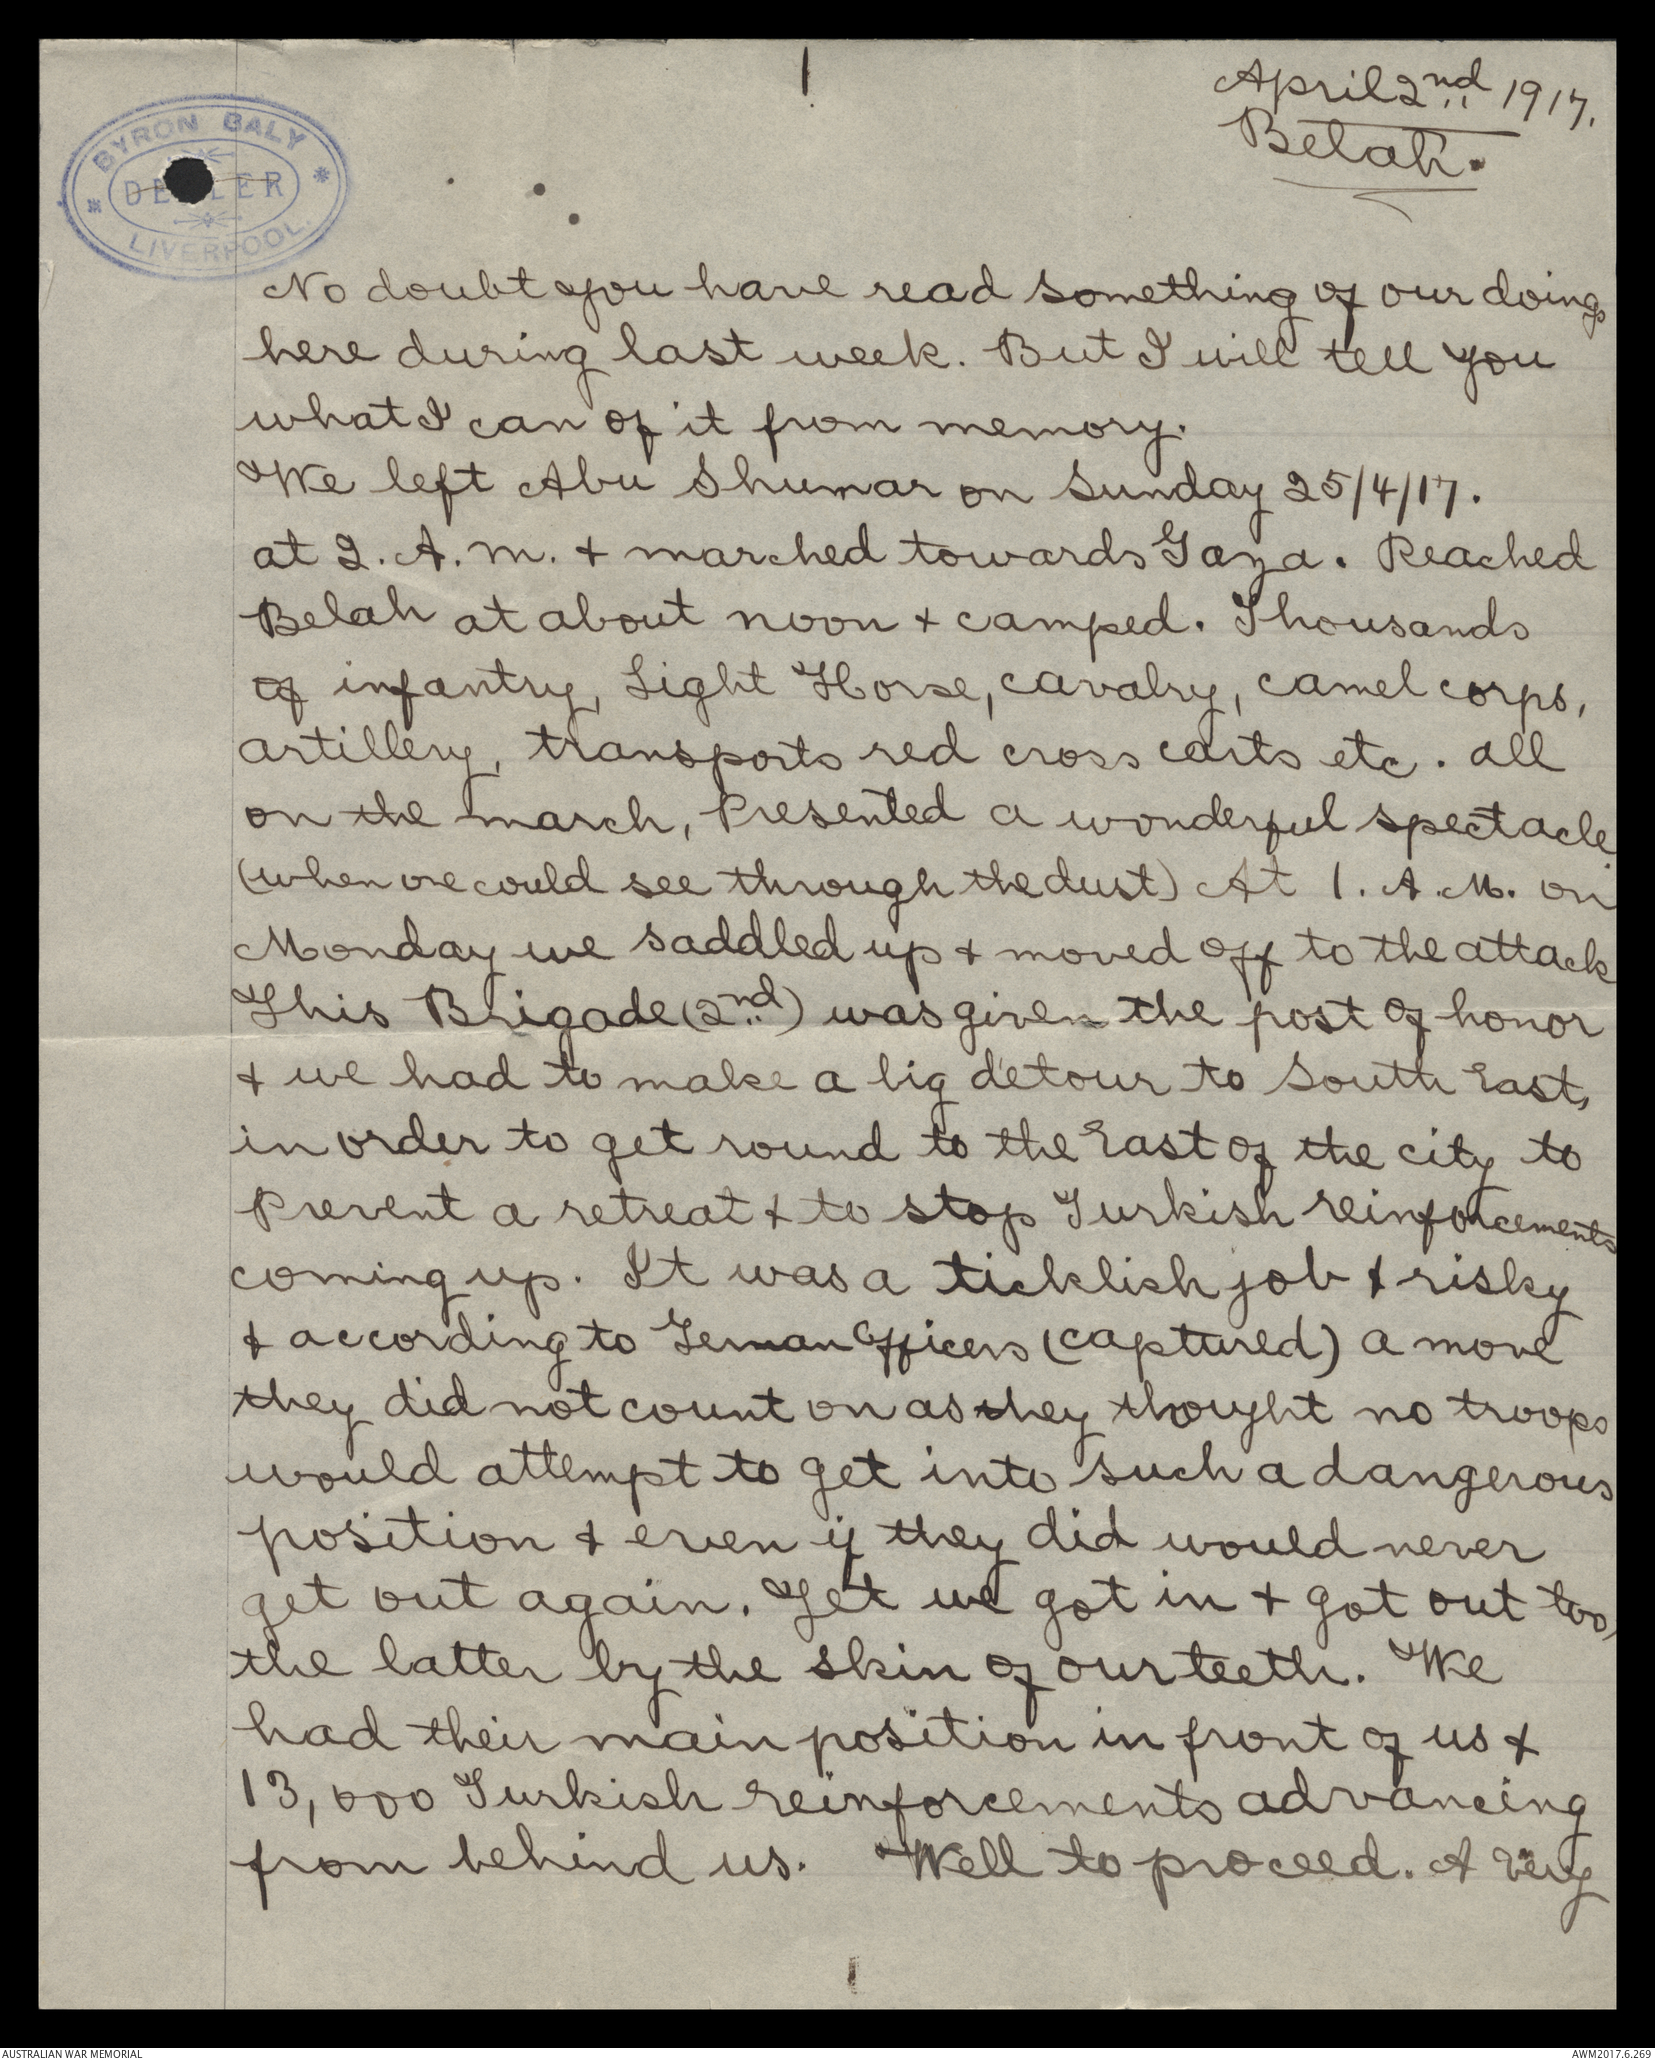 1
April 2nd 1917.
Belah.
BYRON BALY
DEALER
LIVERPOOL.
No doubt you have read something of our doings
here during last week. But I will tell you
what I can of it from memory.
We left Abu Shumar on Sunday 25/4/17.
at 2. A. m. & marched towards Gaza. Reached
Belah at about noon & camped. Thousands
of infantry, Light Horse, cavalry, camel corps,
artillery, transports red cross carts etc. all
on the march, Presented a wonderful spectacle
(when one could see through the dust) At 1. A. M. on
Monday we saddled up & moved off to the attack
This Brigade (2nd) was given the post of honor
& we had to make a big detour to South East,
in order to get round to the East of the city to
Prevent a retreat & to stop Turkish reinforcements
coming up. It was a ticklish job & risky
& according to German Officers (captured) a move
they did not count on as they thought no troops
would attempt to get into such a dangerous
position & even if they did would never
get out again. Yet we got in & got out too,
the latter by the skin of our teeth. We
had their main position in front of us &
13,000 Turkish reinforcements advancing
from behind us. Well to proceed. A very
AUSTRALIAN WAR MEMORIAL
AWM2017.6.269